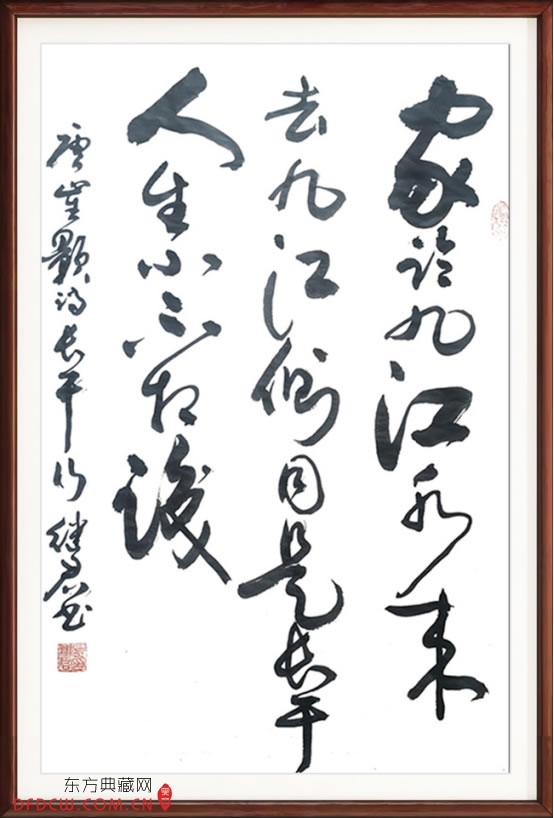 家臨九江水来
去九江側同是長干
人生小不相識
唐崔顥詩長干行 继君书
东方典藏网
DFDCW.COM.CN